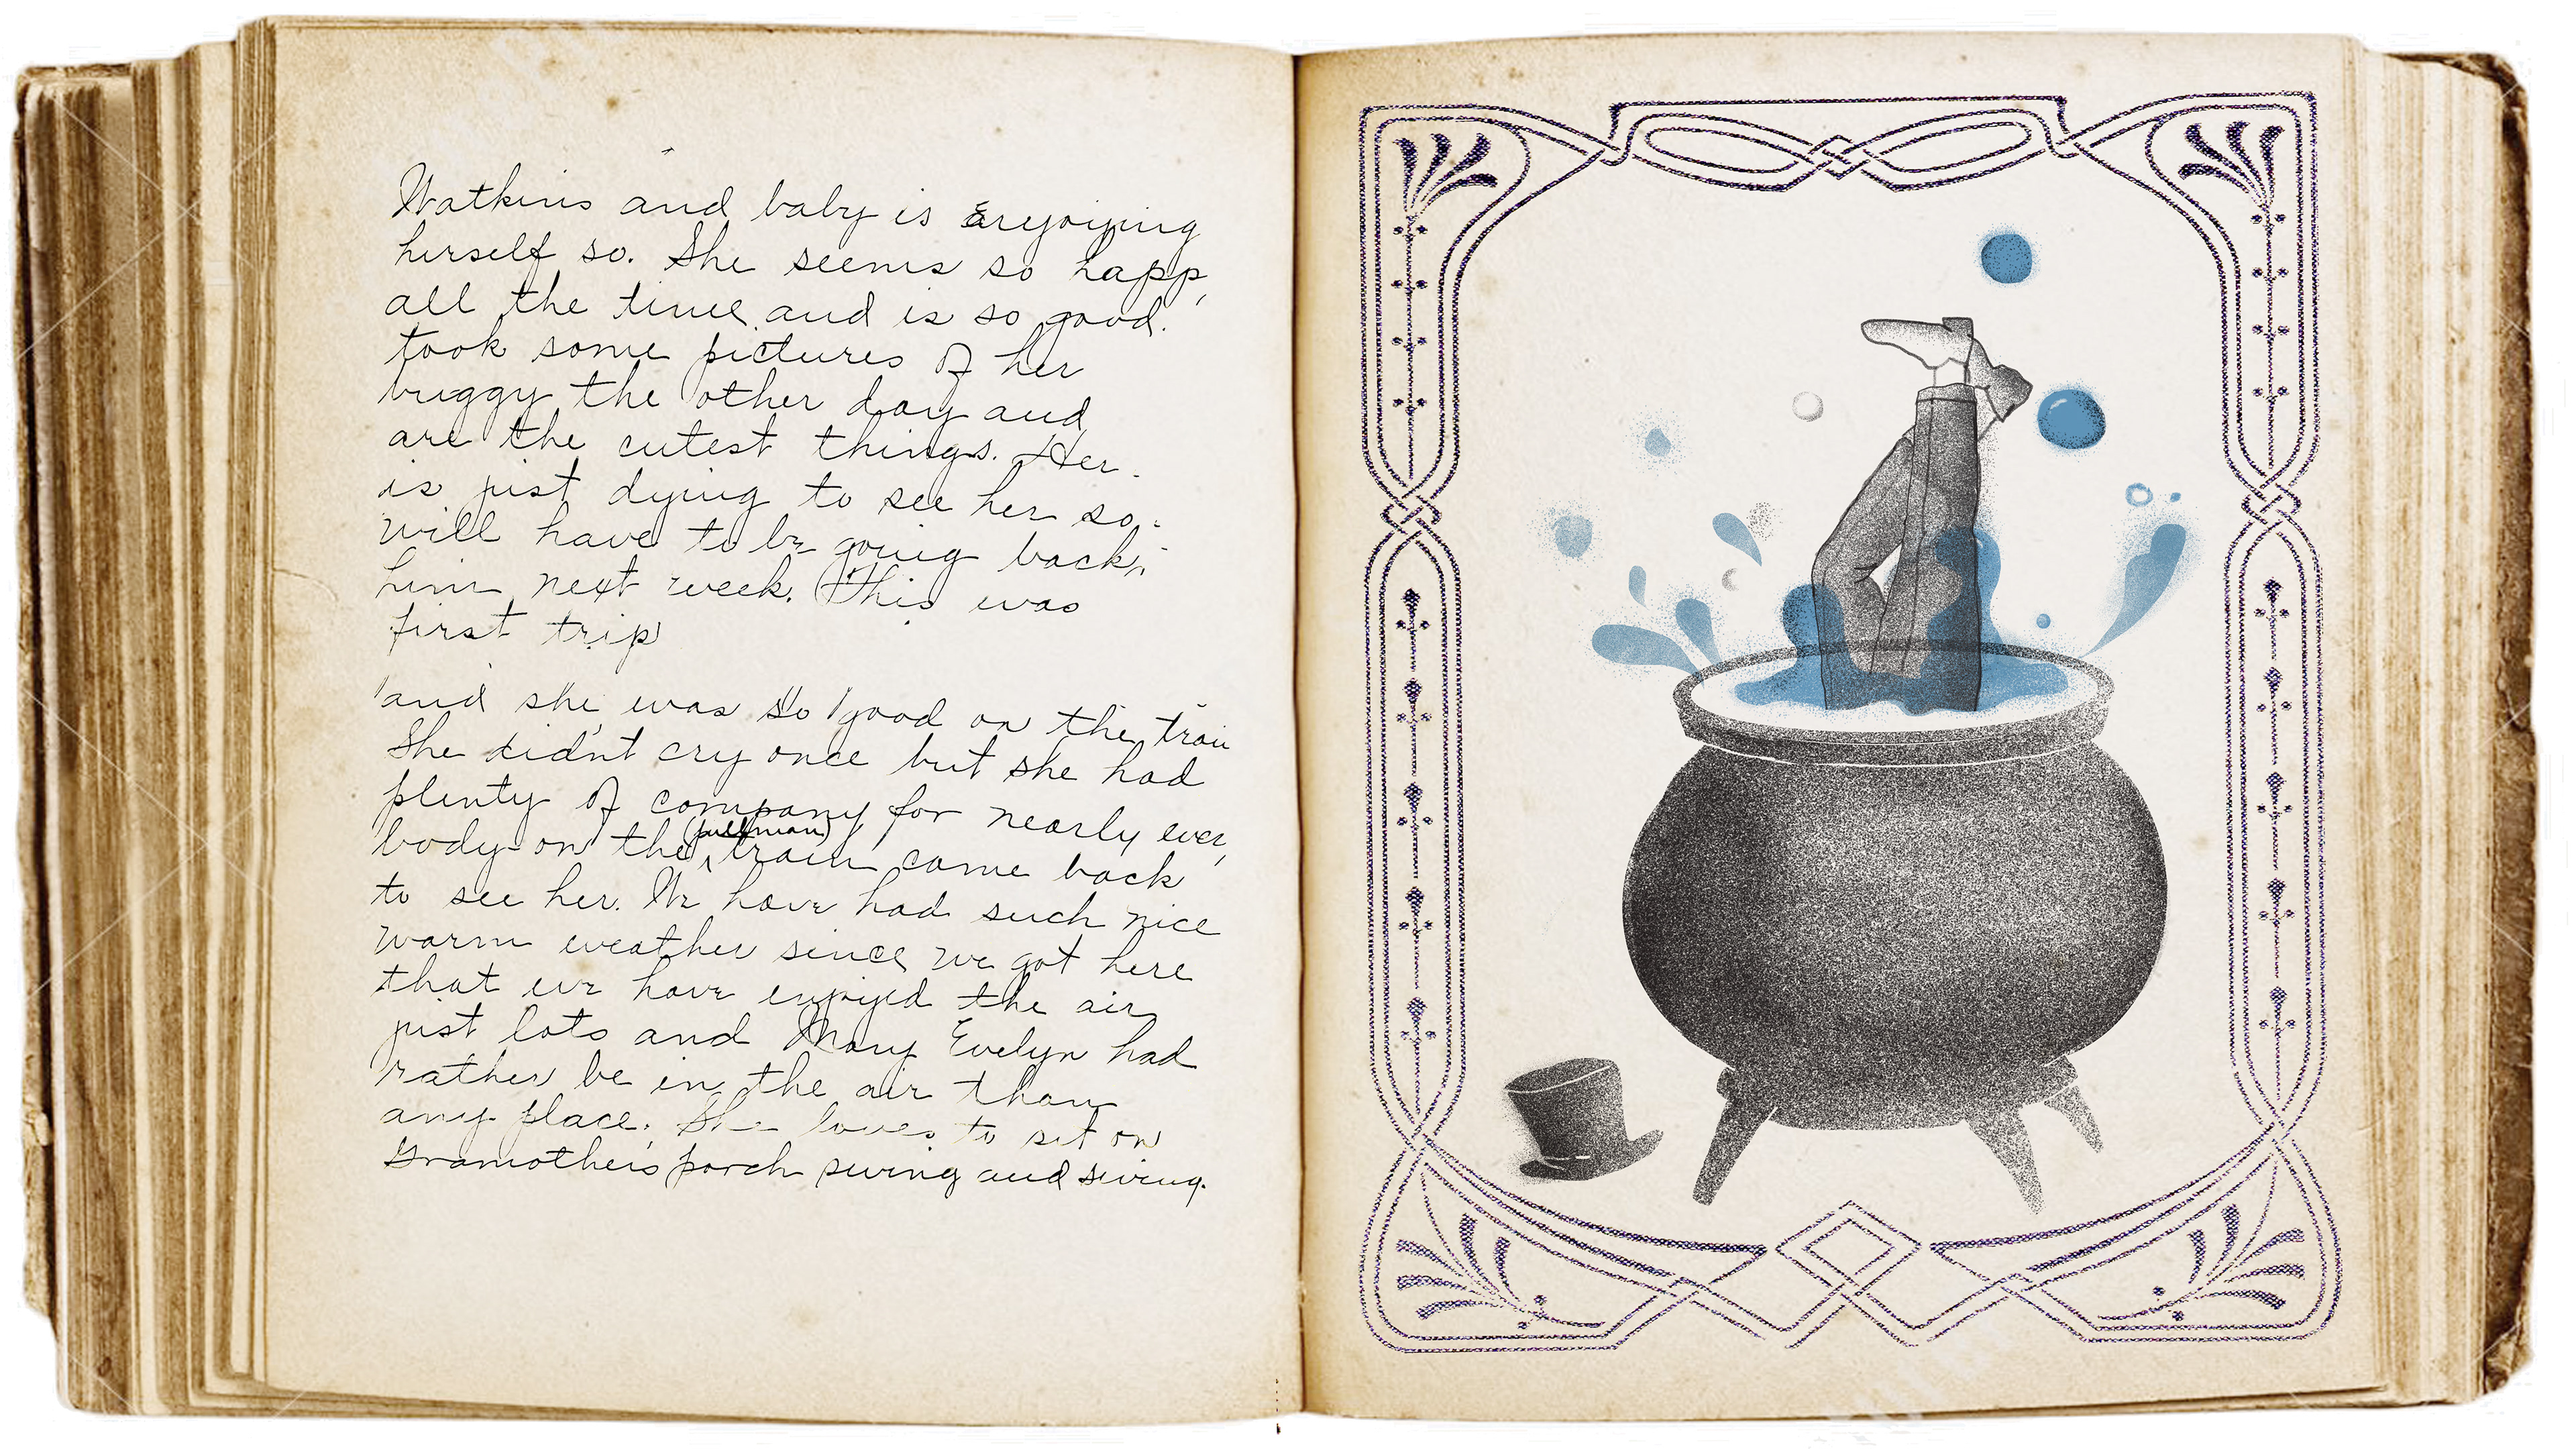 Watkins and baby is enjoying
herself so. She seems so happ
all the time and is so good.
took some pictures of her
buggy the other day and
are the cutest things. Her
is just dying to see her so
will have to be going back
him next week. This was
first trip
and she was so good on the train
She didn't cry once but she had
plenty of company for nearly ever
body on the (pullman) train came back
to see her. We have had such nice
warm weather since we got here
that we have enjoyed the air
just lots and Mary Evelyn had
rather be in the air than
any place. She loves to sit on
Gramothers porch swing and swing.